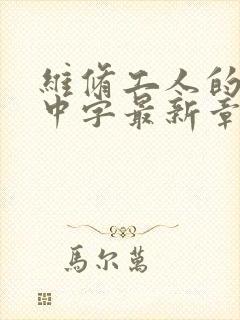 維脩工人的
中字最新章
馬尔萬